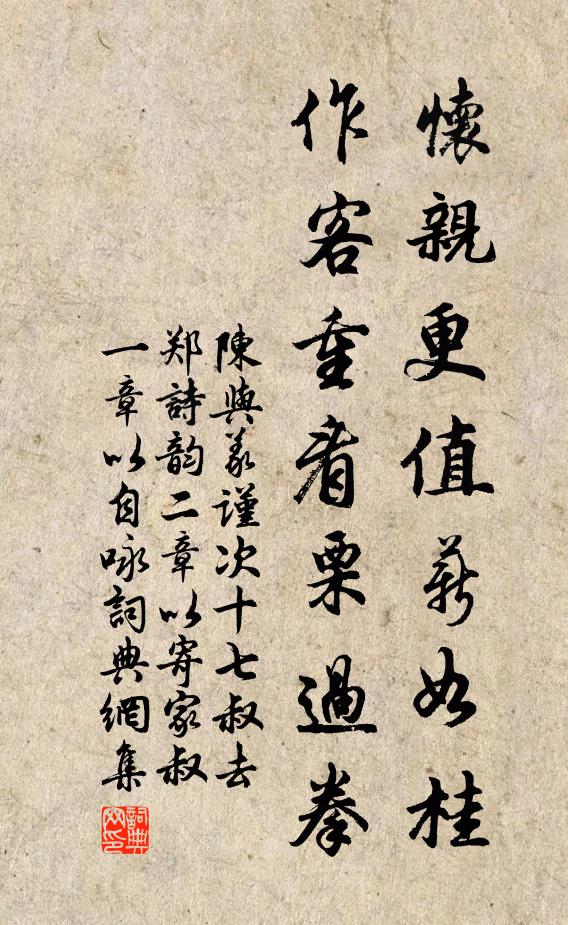 懷親更值薪如桂
作客重看栗過拳
陳與義謹次十七叔去
郑詩韵二章以寄家叔
一章以自咏詞典網集
詞典网印